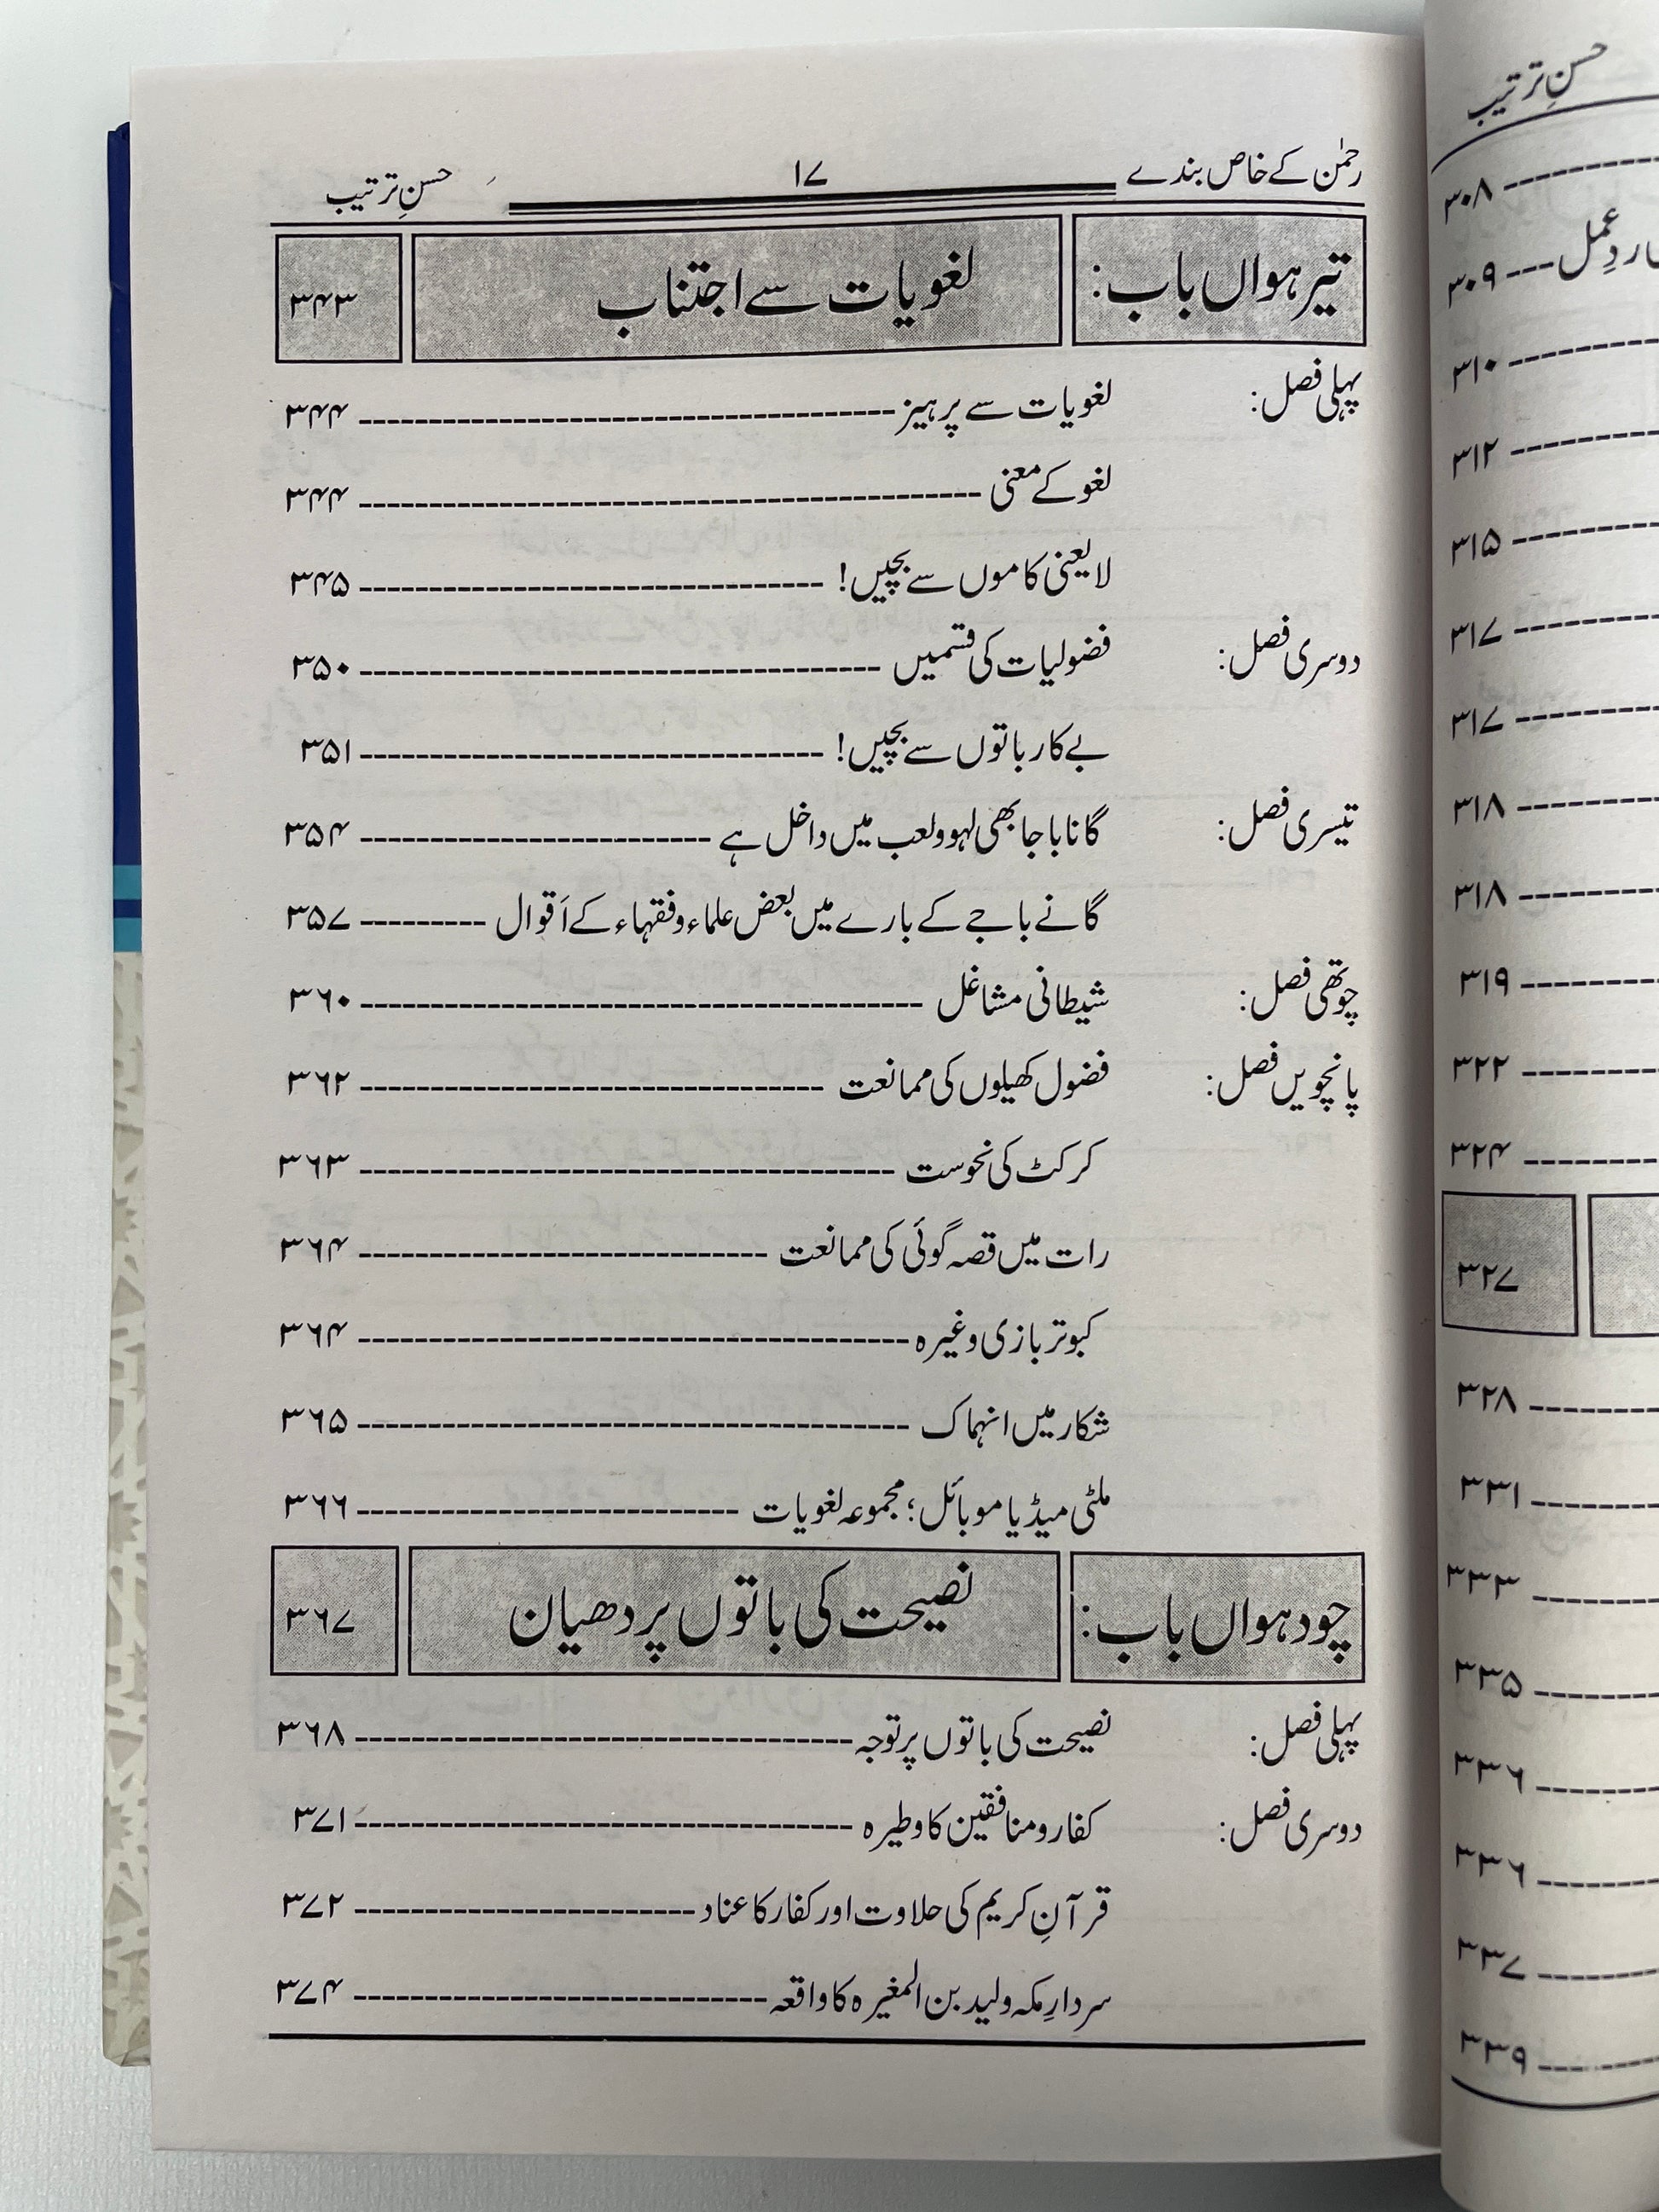 رحمٰن کے خاص بندے ۱۷ حسنِ ترتیب
تیرہواں باب: لغویات سے اجتناب ۳۴۳
پہلی فصل: لغویات سے پرہیز ۳۴۴
لغو کے معنی ۳۴۴
لایعنی کاموں سے بچیں! ۳۴۵
دوسری فصل: فضولیات کی قسمیں ۳۵۰
بے کار باتوں سے بچیں! ۳۵۱
تیسری فصل: گانا باجا بھی لہو ولعب میں داخل ہے ۳۵۴
گانے باجے کے بارے میں بعض علماء وفقہاء کے اَقوال ۳۵۷
چوتھی فصل: شیطانی مشاغل ۳۶۰
پانچویں فصل: فضول کھیلوں کی ممانعت ۳۶۲
کرکٹ کی نحوست ۳۶۳
رات میں قصہ گوئی کی ممانعت ۳۶۴
کبوتر بازی وغیرہ ۳۶۴
شکار میں انہماک ۳۶۵
ملٹی میڈیا موبائل؛ مجموعہ لغویات ۳۶۶
چودہواں باب: نصیحت کی باتوں پر دھیان ۳۶۷
پہلی فصل: نصیحت کی باتوں پر توجہ ۳۶۸
دوسری فصل: کفار ومنافقین کا وطیرہ ۳۷۱
قرآنِ کریم کی حلاوت اور کفار کا عناد ۳۷۲
سردارِ مکہ ولید بن المغیرہ کا واقعہ ۳۷۴
حسنِ ترتیب
۳۰۸
ردِ عمل ۳۰۹
۳۱۰
۳۱۲
۳۱۵
۳۱۷
۳۱۷
۳۱۸
۳۱۸
۳۱۹
۳۲۲
۳۲۴
۳۲۷
۳۲۸
۳۳۱
۳۳۳
۳۳۵
۳۳۶
۳۳۶
۳۳۷
۳۳۹